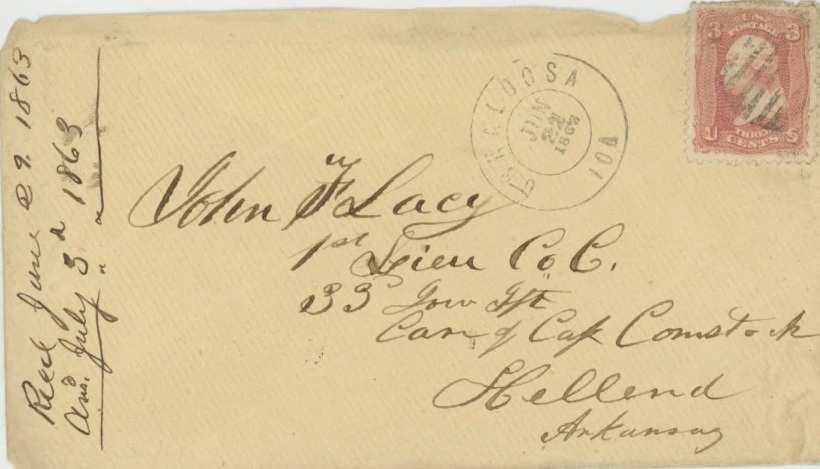 Recd June 29. 1863
Ansd. July 3d 1863
OSKALOOSA
IOA
JUN
22
1863
U.S.
POSTAGE
3 3
U S
THREE
CENTS
John F Lacy
1st Lieu Co C.
33 Iow Ift
Care of Cap Comstock
Hellend
Arkansas